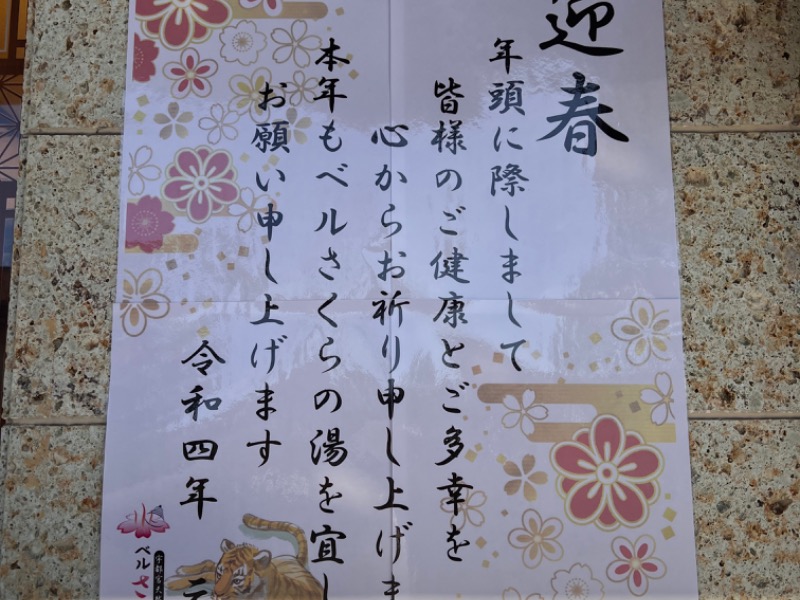 迎春
年頭に際しまして
皆様のご健康とご多幸を
心からお祈り申し上げま
本年もベルさくらの湯を宜し
お願い申し上げます
令和四年
ベルさ